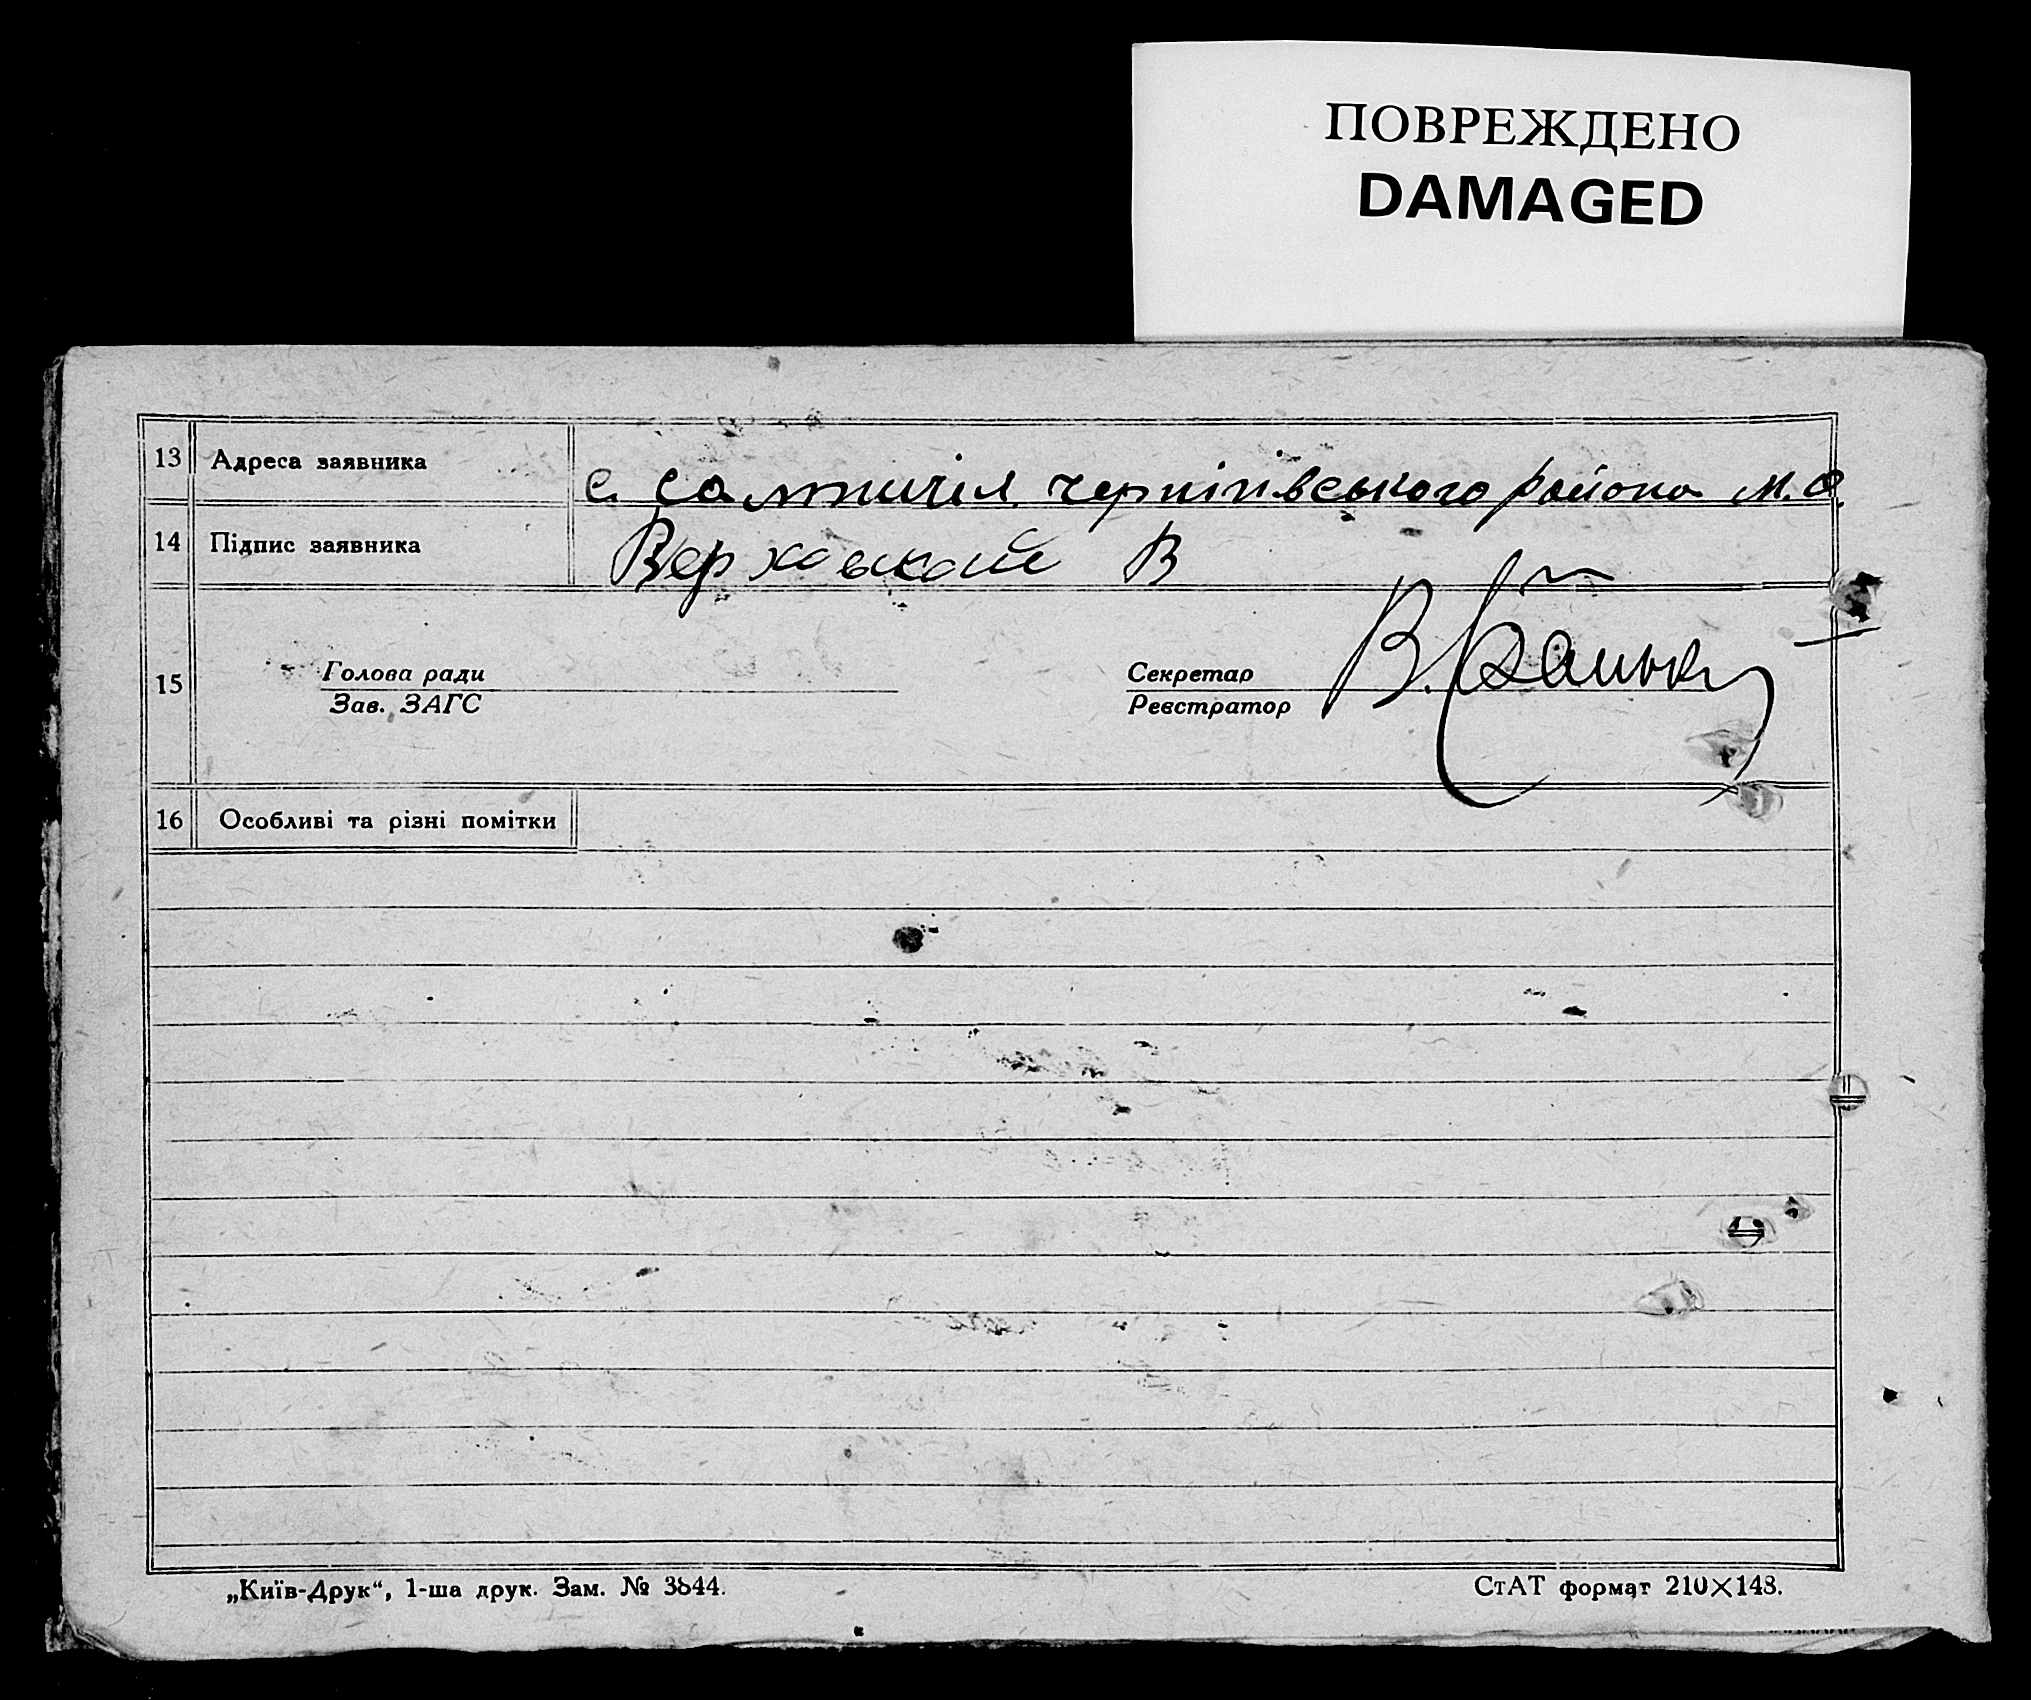 ПОВРЕЖДЕНО
DAMAGED
13 Адреса заявника с. чернігівського района М.О.
14 Підпис заявника В
15 Голова ради
Зав. ЗАГС
Секретар
Реєстратор В.
16 Особливі та різні помітки
„Київ-Друк“, 1-ша друк. Зам. № 3844.
СтАТ формат 210×148.